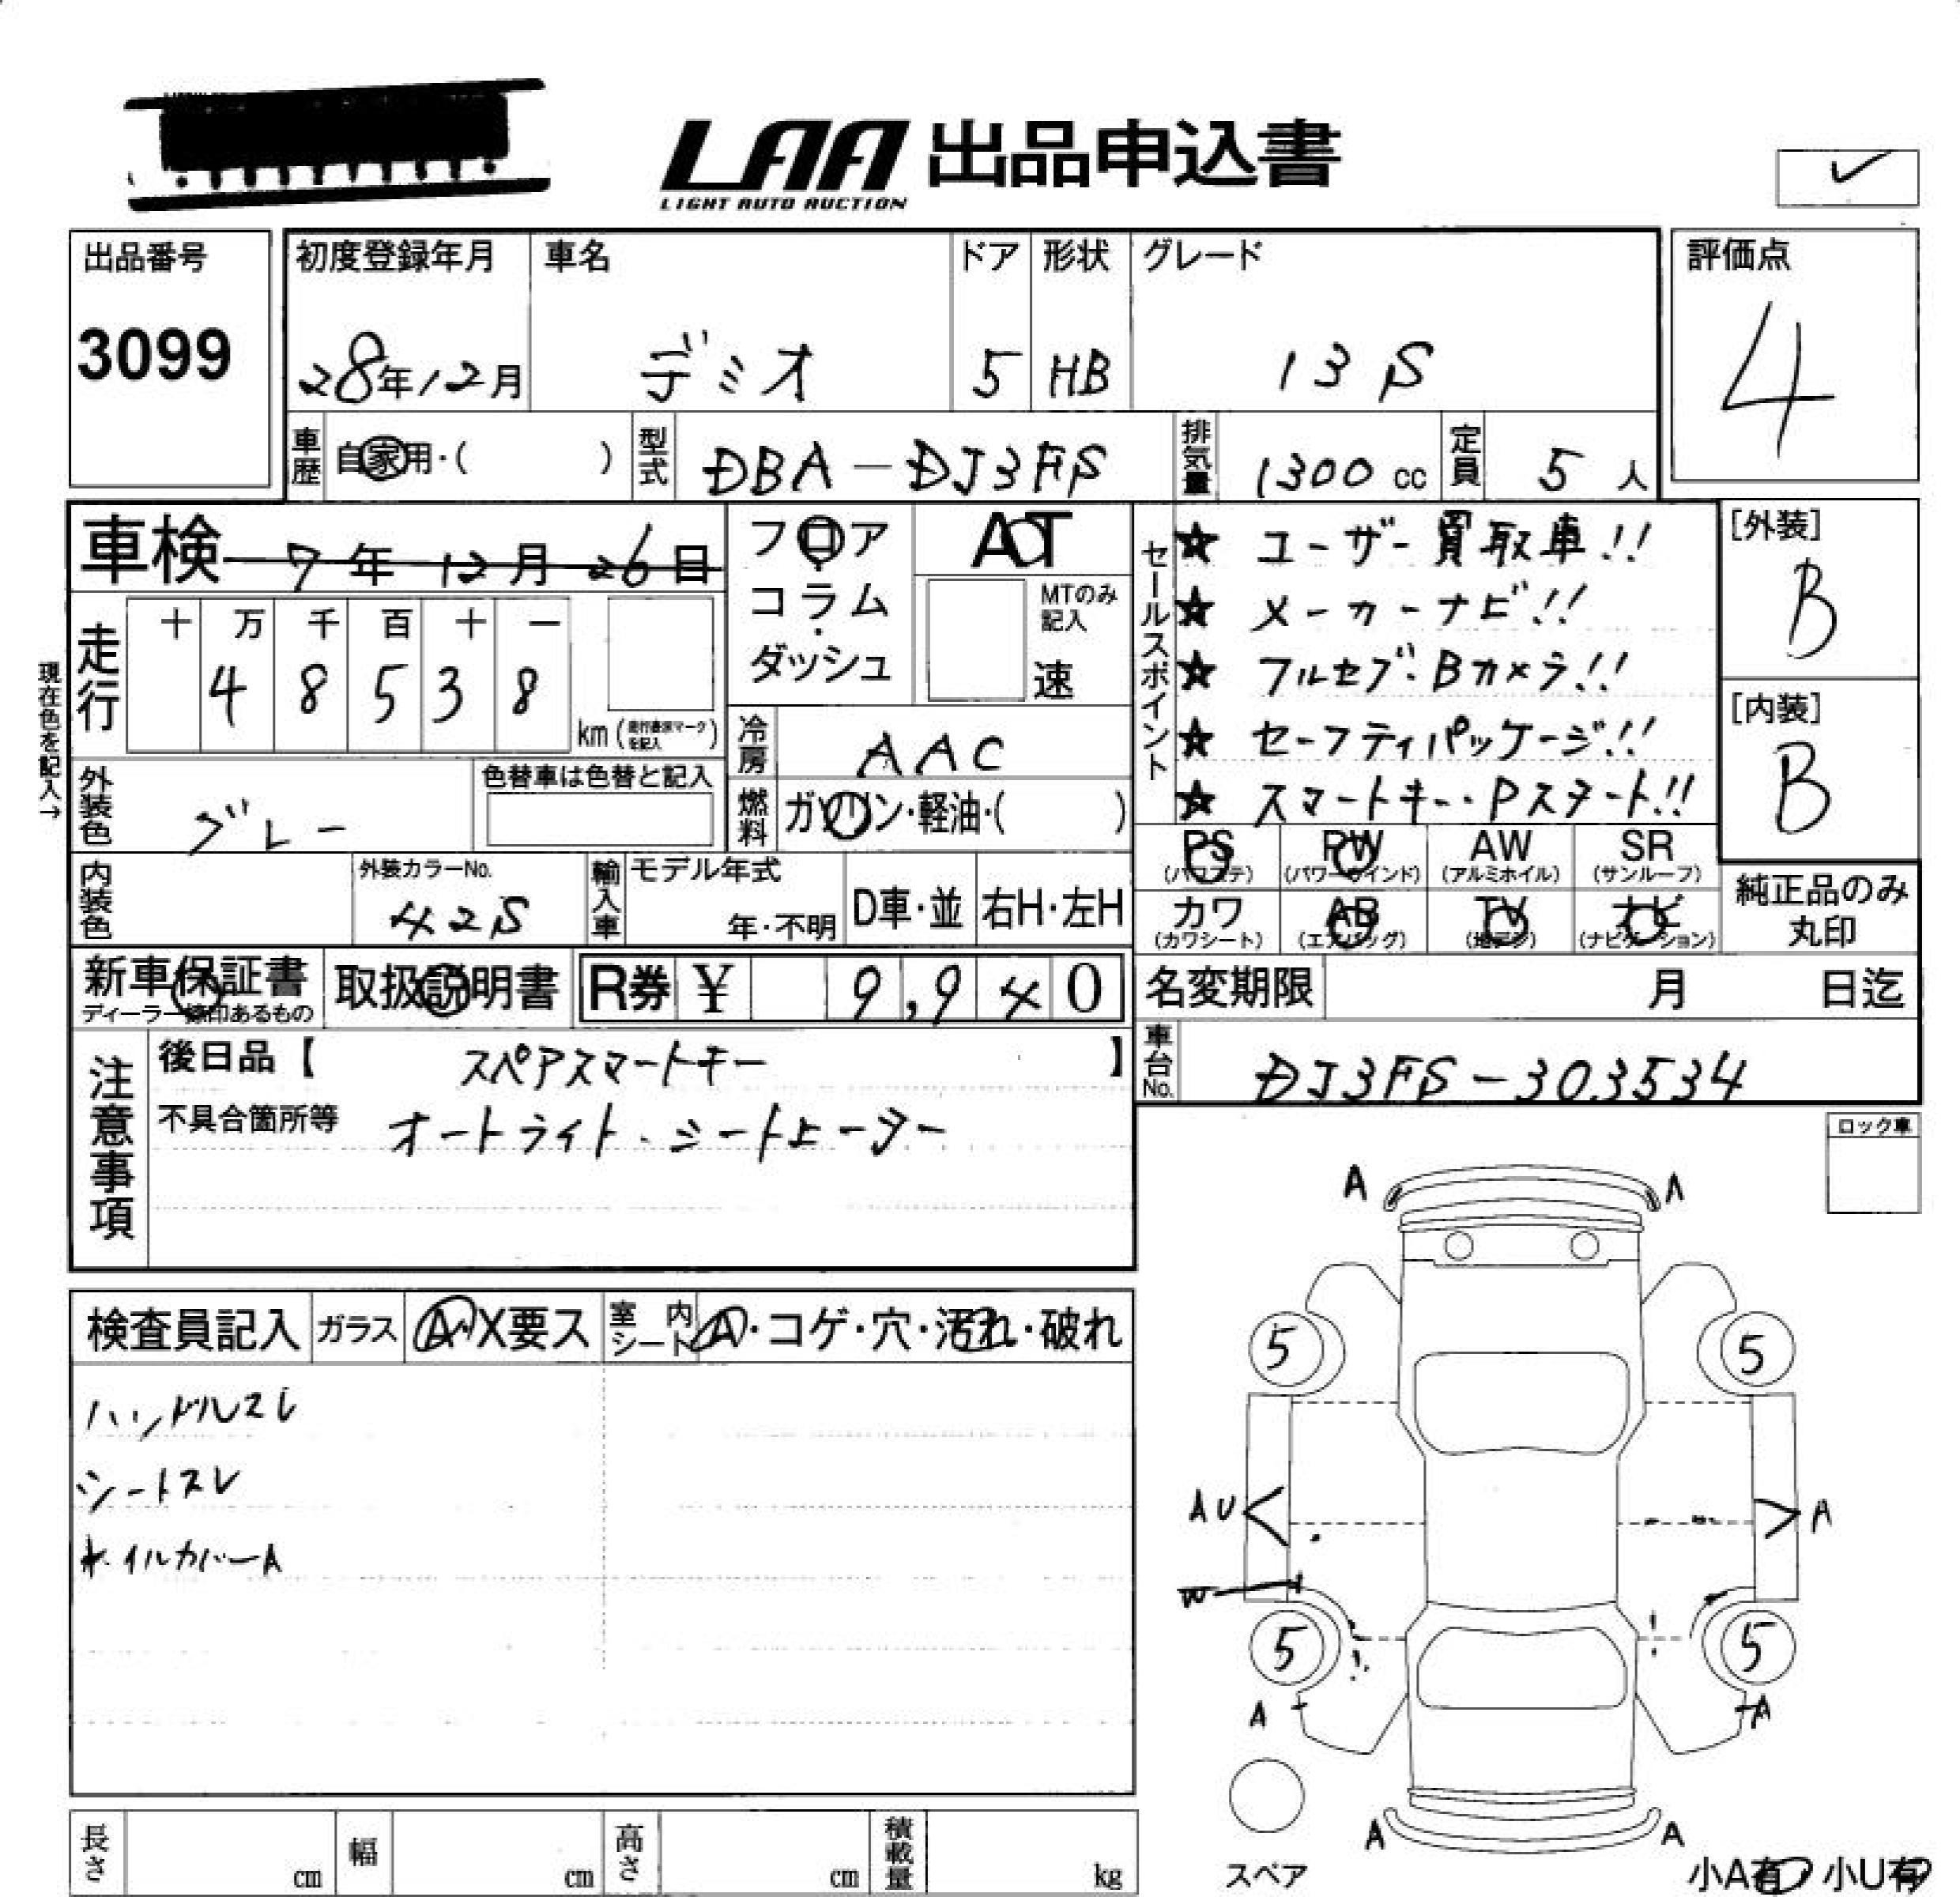 LAA 出品申込書
LIGHT AUTO AUCTION
出品番号
3099
初度登録年月 車名 ドア 形状 グレード
28年12月 デミオ 5 HB 13S
評価点
4
車歴 自家用・( ) 型式 DBA-DJ3FS 排気量 1300cc 定員 5人
車検 7年12月26日
フロア
コラム
・
ダッシュ
AT
MTのみ
記入
速
セールスポイント
☆ ユーザー買取車!!
☆ メーカーナビ!!
☆ フルセグ・Bカメラ!!
☆ セーフティパッケージ!!
☆ スマートキー・Pスタート!!
[外装]
B
[内装]
B
現在色を記入→
走行 十 万 千 百 十 一
4 8 5 3 8
km
冷房 AAC
燃料 ガソリン・軽油・( )
外装色 グレー
色替車は色替と記入
内装色
外装カラーNo.
42S
輸入車 モデル年式
年・不明
D車・並 右H・左H
PS PW AW SR
(パワステ) (パワーウインド) (アルミホイル) (サンルーフ)
カワ AB TV ナビ
(カワシート) (エアバッグ) (地デジ) (ナビゲーション)
純正品のみ
丸印
新車保証書
ディーラー捺印あるもの
取扱説明書
R券 ¥ 9,940
名変期限 月 日迄
車台No. DJ3FS-303534
注意事項
後日品【 スペアスマートキー 】
不具合箇所等 オートライト・シートヒーター
ロック車
検査員記入 ガラス A・X要ス 室内シート A・コゲ・穴・汚れ・破れ
ハンドルスレ
シートスレ
ホイルカバーA
A A
5 5
AU A
W
5 5
A A
A A
スペア
小A有 小U有
長さ cm 幅 cm 高さ cm 積載量 kg